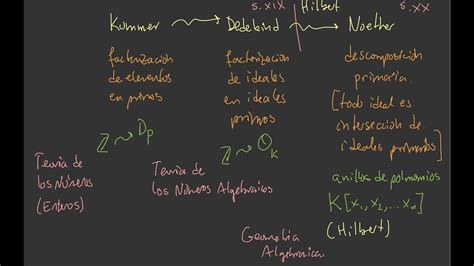 S. XIX Hilbert S. XX
Kummer Dedekind Noether
factorización
de elementos
en primos
factorización
de ideales
en ideales
primos
descomposición
primaria
[todo ideal es
intersección de
ideales primarios]
ℤ ⇝ D_p
ℤ ⇝ O_K
Teoría de
los Números
(Enteros)
Teoría de
los Números Algebraicos
anillos de polinomios
K[x₁, x₂, ... xₙ]
(Hilbert)
Geometría
Algebraica.